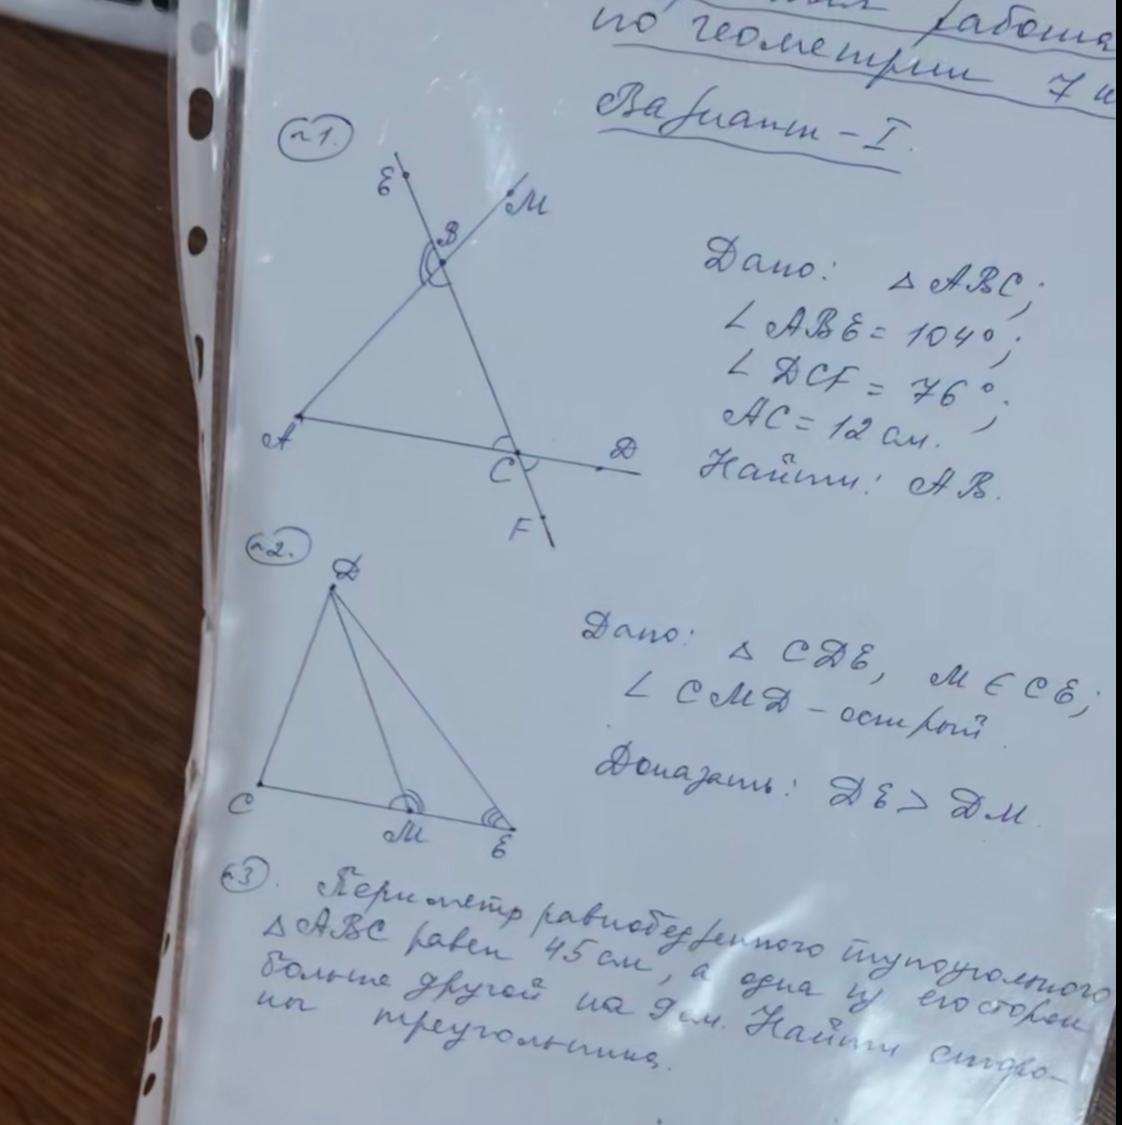 работа
по геометрии 7
Вариант - I.
№1.
E
M
B
A
C
D
F
Дано: △ ABC;
∠ ABE = 104°;
∠ DCF = 76°;
AC = 12 см.
Найти: AB.
№2.
D
C
M
E
Дано: △ CDE, M ∈ CE;
∠ CMD - острый.
Доказать: DE > DM.
№3. Периметр равнобедренного тупоугольного
△ABC равен 45 см, а одна из его сторон
больше другой на 9 см. Найти сторо-
ны треугольника.